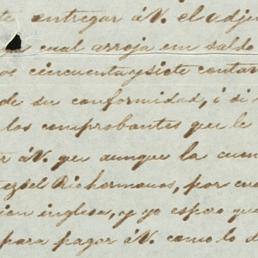 te entregar á V. el adjun
la cual arroja en saldo
os cincuenta y siete contar
de su conformidad, i si
los comprobantes que le
ar á V. que aunque la cuen
tez del Rio hermanos, por cua
ion inglesa, y yo espero que
para pagar á V. como lo d